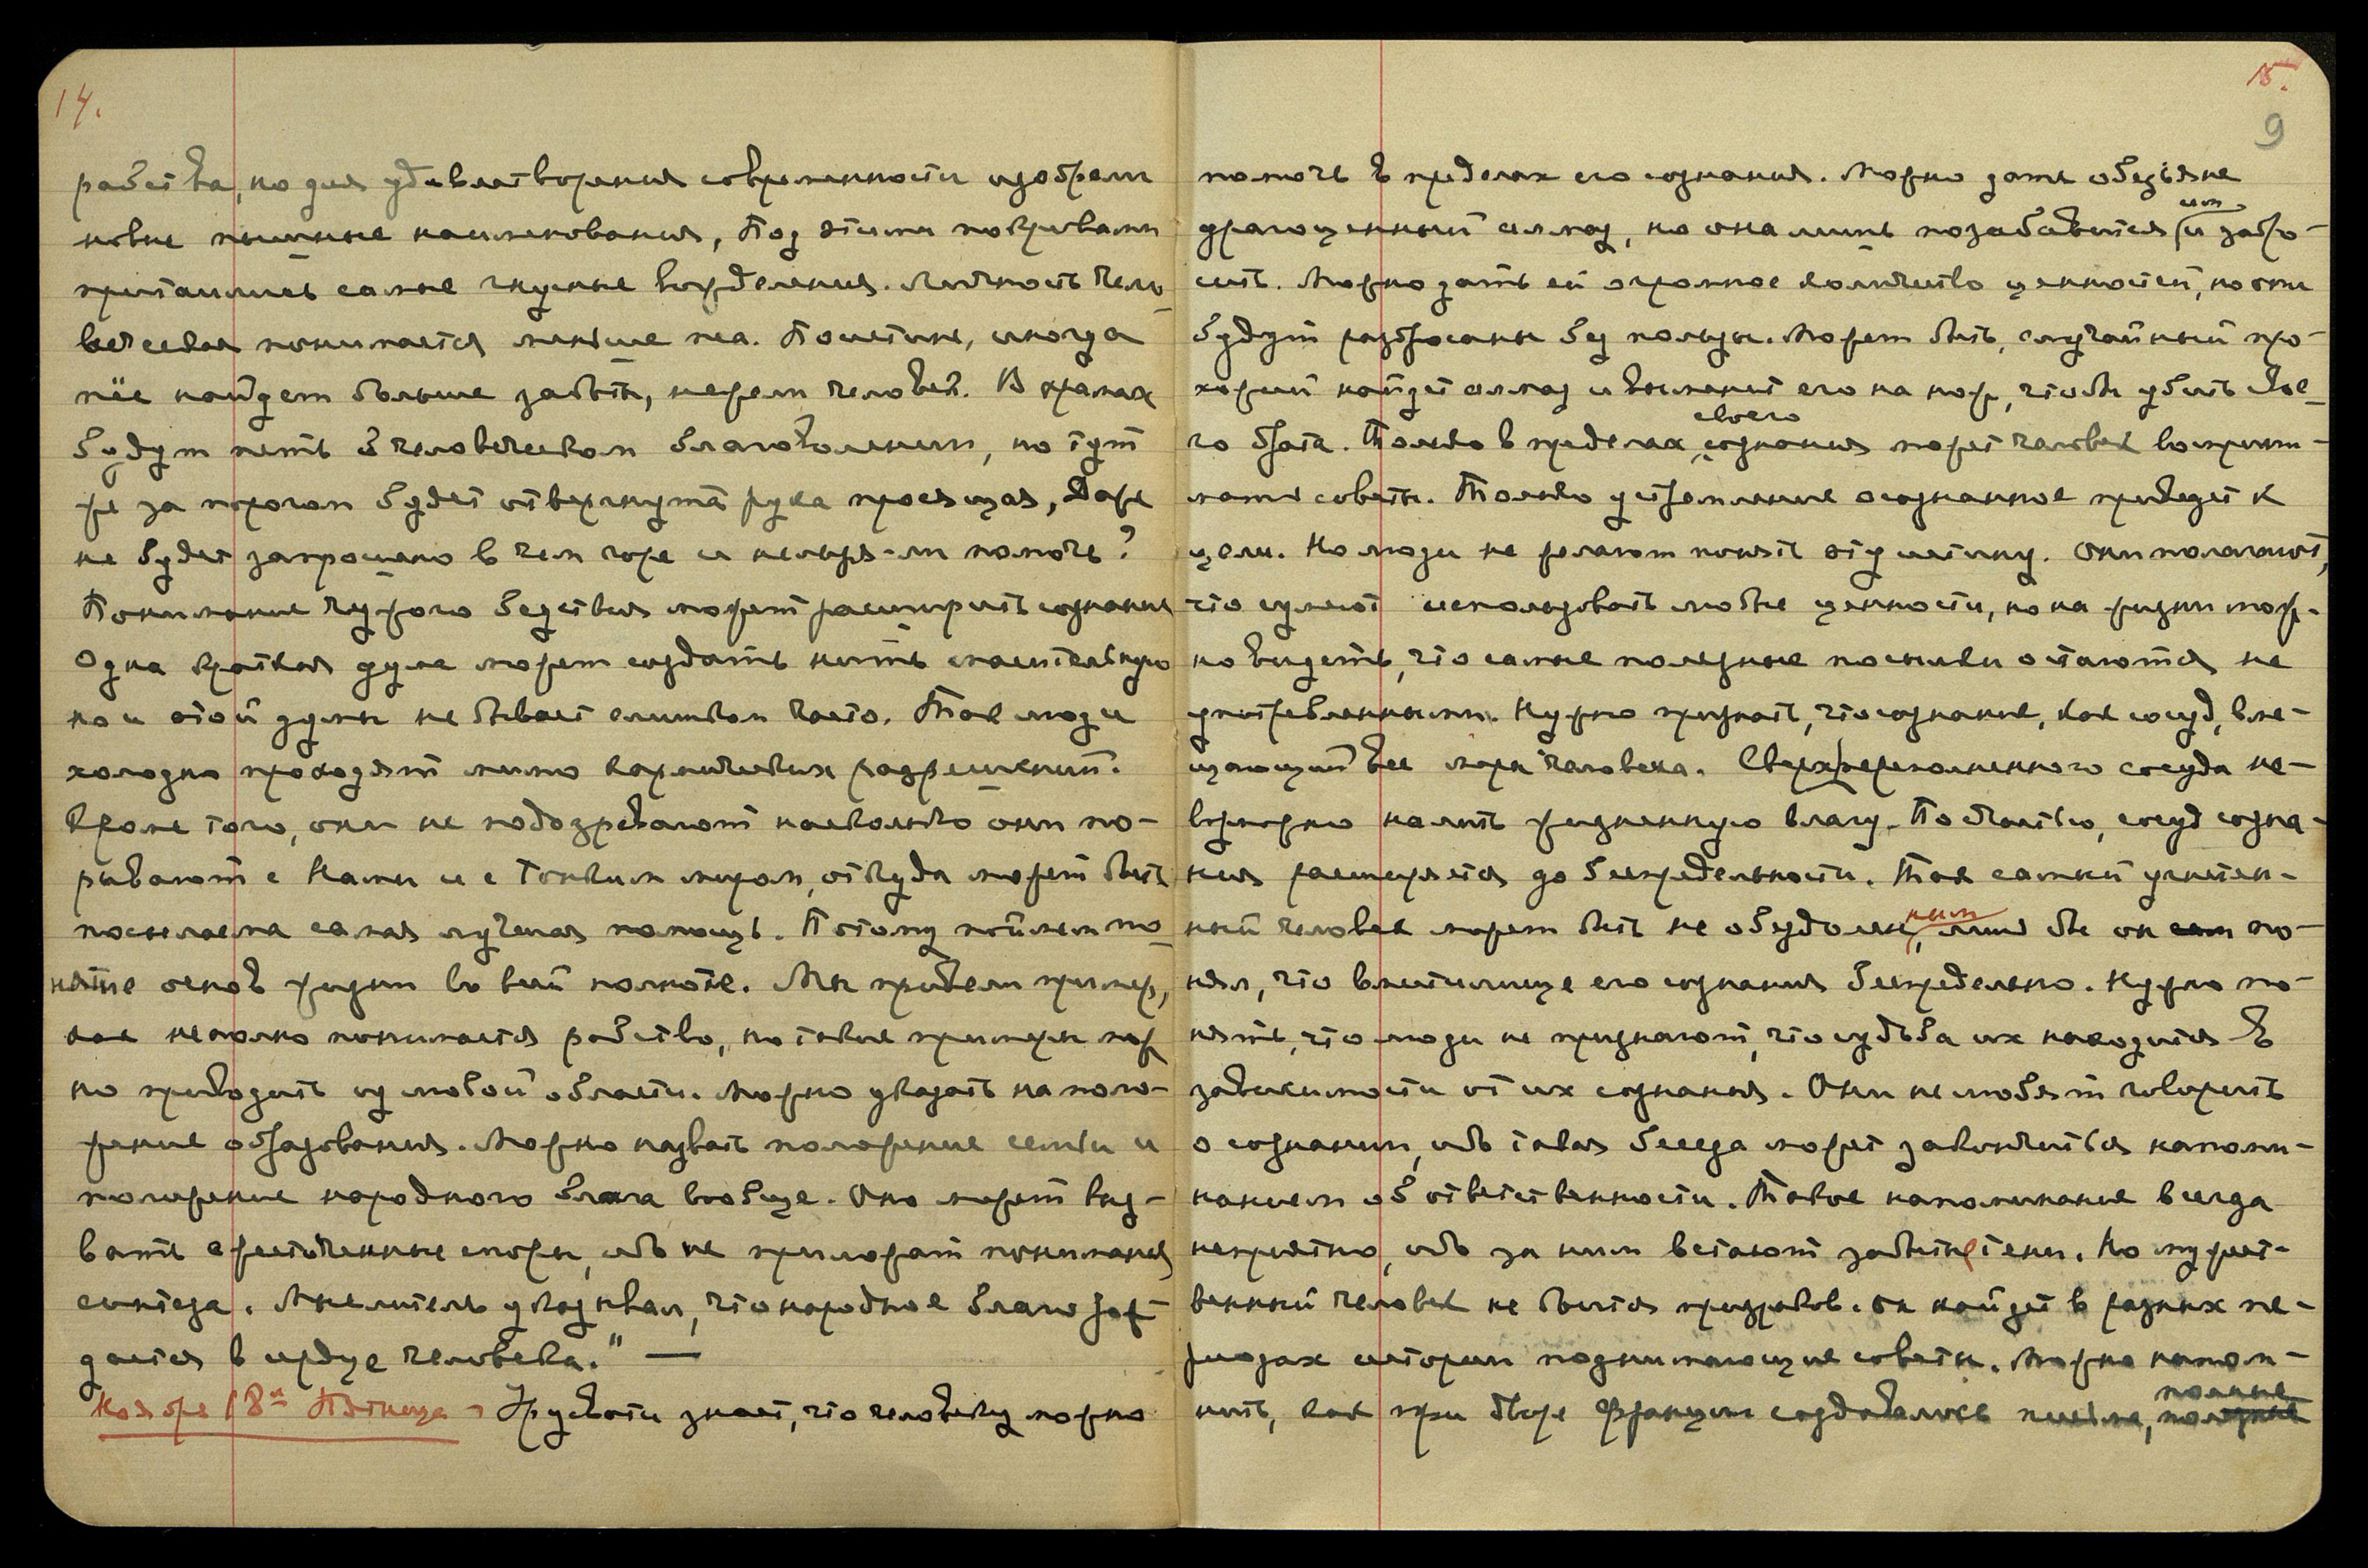 14.
рабства, но для удовлетворения современности изобрели
новые пышные наименования, Под этими покрывалами
притаились самые гнусные вожделения. Личность чело-
веческая понимается меньше пса. Поистине, иногда
пёс найдет больше заботы, нежели человек. В храмах
будут петь о человеческом благоволении, но тут
же за порогом будет отвергнута рука просящая, Даже
не будет запрошено в чем горе и нельзя-ли помочь?
Понимание чужого бедствия может расширить сознание
Одна краткая дума может создать нить спасительную
но и этой думы не бывает слишком часто. Так люди
холодно проходят мимо кармических разрешений.
Кроме того, они не подозревают насколько они по-
рывают с Нами и с Тонким миром, откуда может быть
посылаема самая лучшая помощь. Потому поймем по-
нятие основ жизни во всей полноте. Мы привели пример,
как неполно понимается рабство, но такие примеры мож
но приводить из любой области. Можно указать на поло-
жение образования. Можно назвать положение семьи и
положение народного блага вообще. Оно может выз-
вать ожесточенные споры, ибо не приложат понимания
синтеза. Мыслитель указывал, что народное благо зож-
дается в сердце человека." —
Ноября 18го Пятница - Урусвати знает, что человеку можно
15.
9
помочь в пределах его сознания. Можно дать обезьяне
драгоценный алмаз, но она лишь позабавится и забро-
или
сит. Можно дать ей огромное количество ценностей, но они
будут разбросаны без пользы. Может быть, случайный про-
хожий найдет алмаз и выменяет его на нож, чтобы убить свое-
го брата. Только в пределах своего сознания может человек восприни-
мать советы. Только устремление осознанное приведет к
цели. Но люди не желают понять эту истину. Они полагают,
что сумеют использовать любые ценности, но на жизни мож-
но видеть, что самые полезные посылки остаются не
употребленными. Нужно признать, что сознание, как сосуд, вме-
щающий все меры человека. Сверх переполненного сосуда не-
возможно налить жизненную влагу. Посчастью, сосуд созна-
ния расширяется до беспредельности. Так самый угнетен-
ный человек может быть не обездоленным, лишь бы он по-
нял, что вместилище его сознания беспредельно. Нужно по-
нять, что люди не признают, что судьба их находится в
зависимости от их сознания. Они не любят говорить
о сознании, ибо такая беседа может закончиться напоми-
нанием об ответственности. Такое напоминание всегда
неприятно, ибо за ним встают забытые тени. Но мужест-
венный человек не боится призраков. Он найдет в разных пе-
риодах истории поднимающие советы. Можно напом-
нить, как при дворе Франции создавались письма, полные